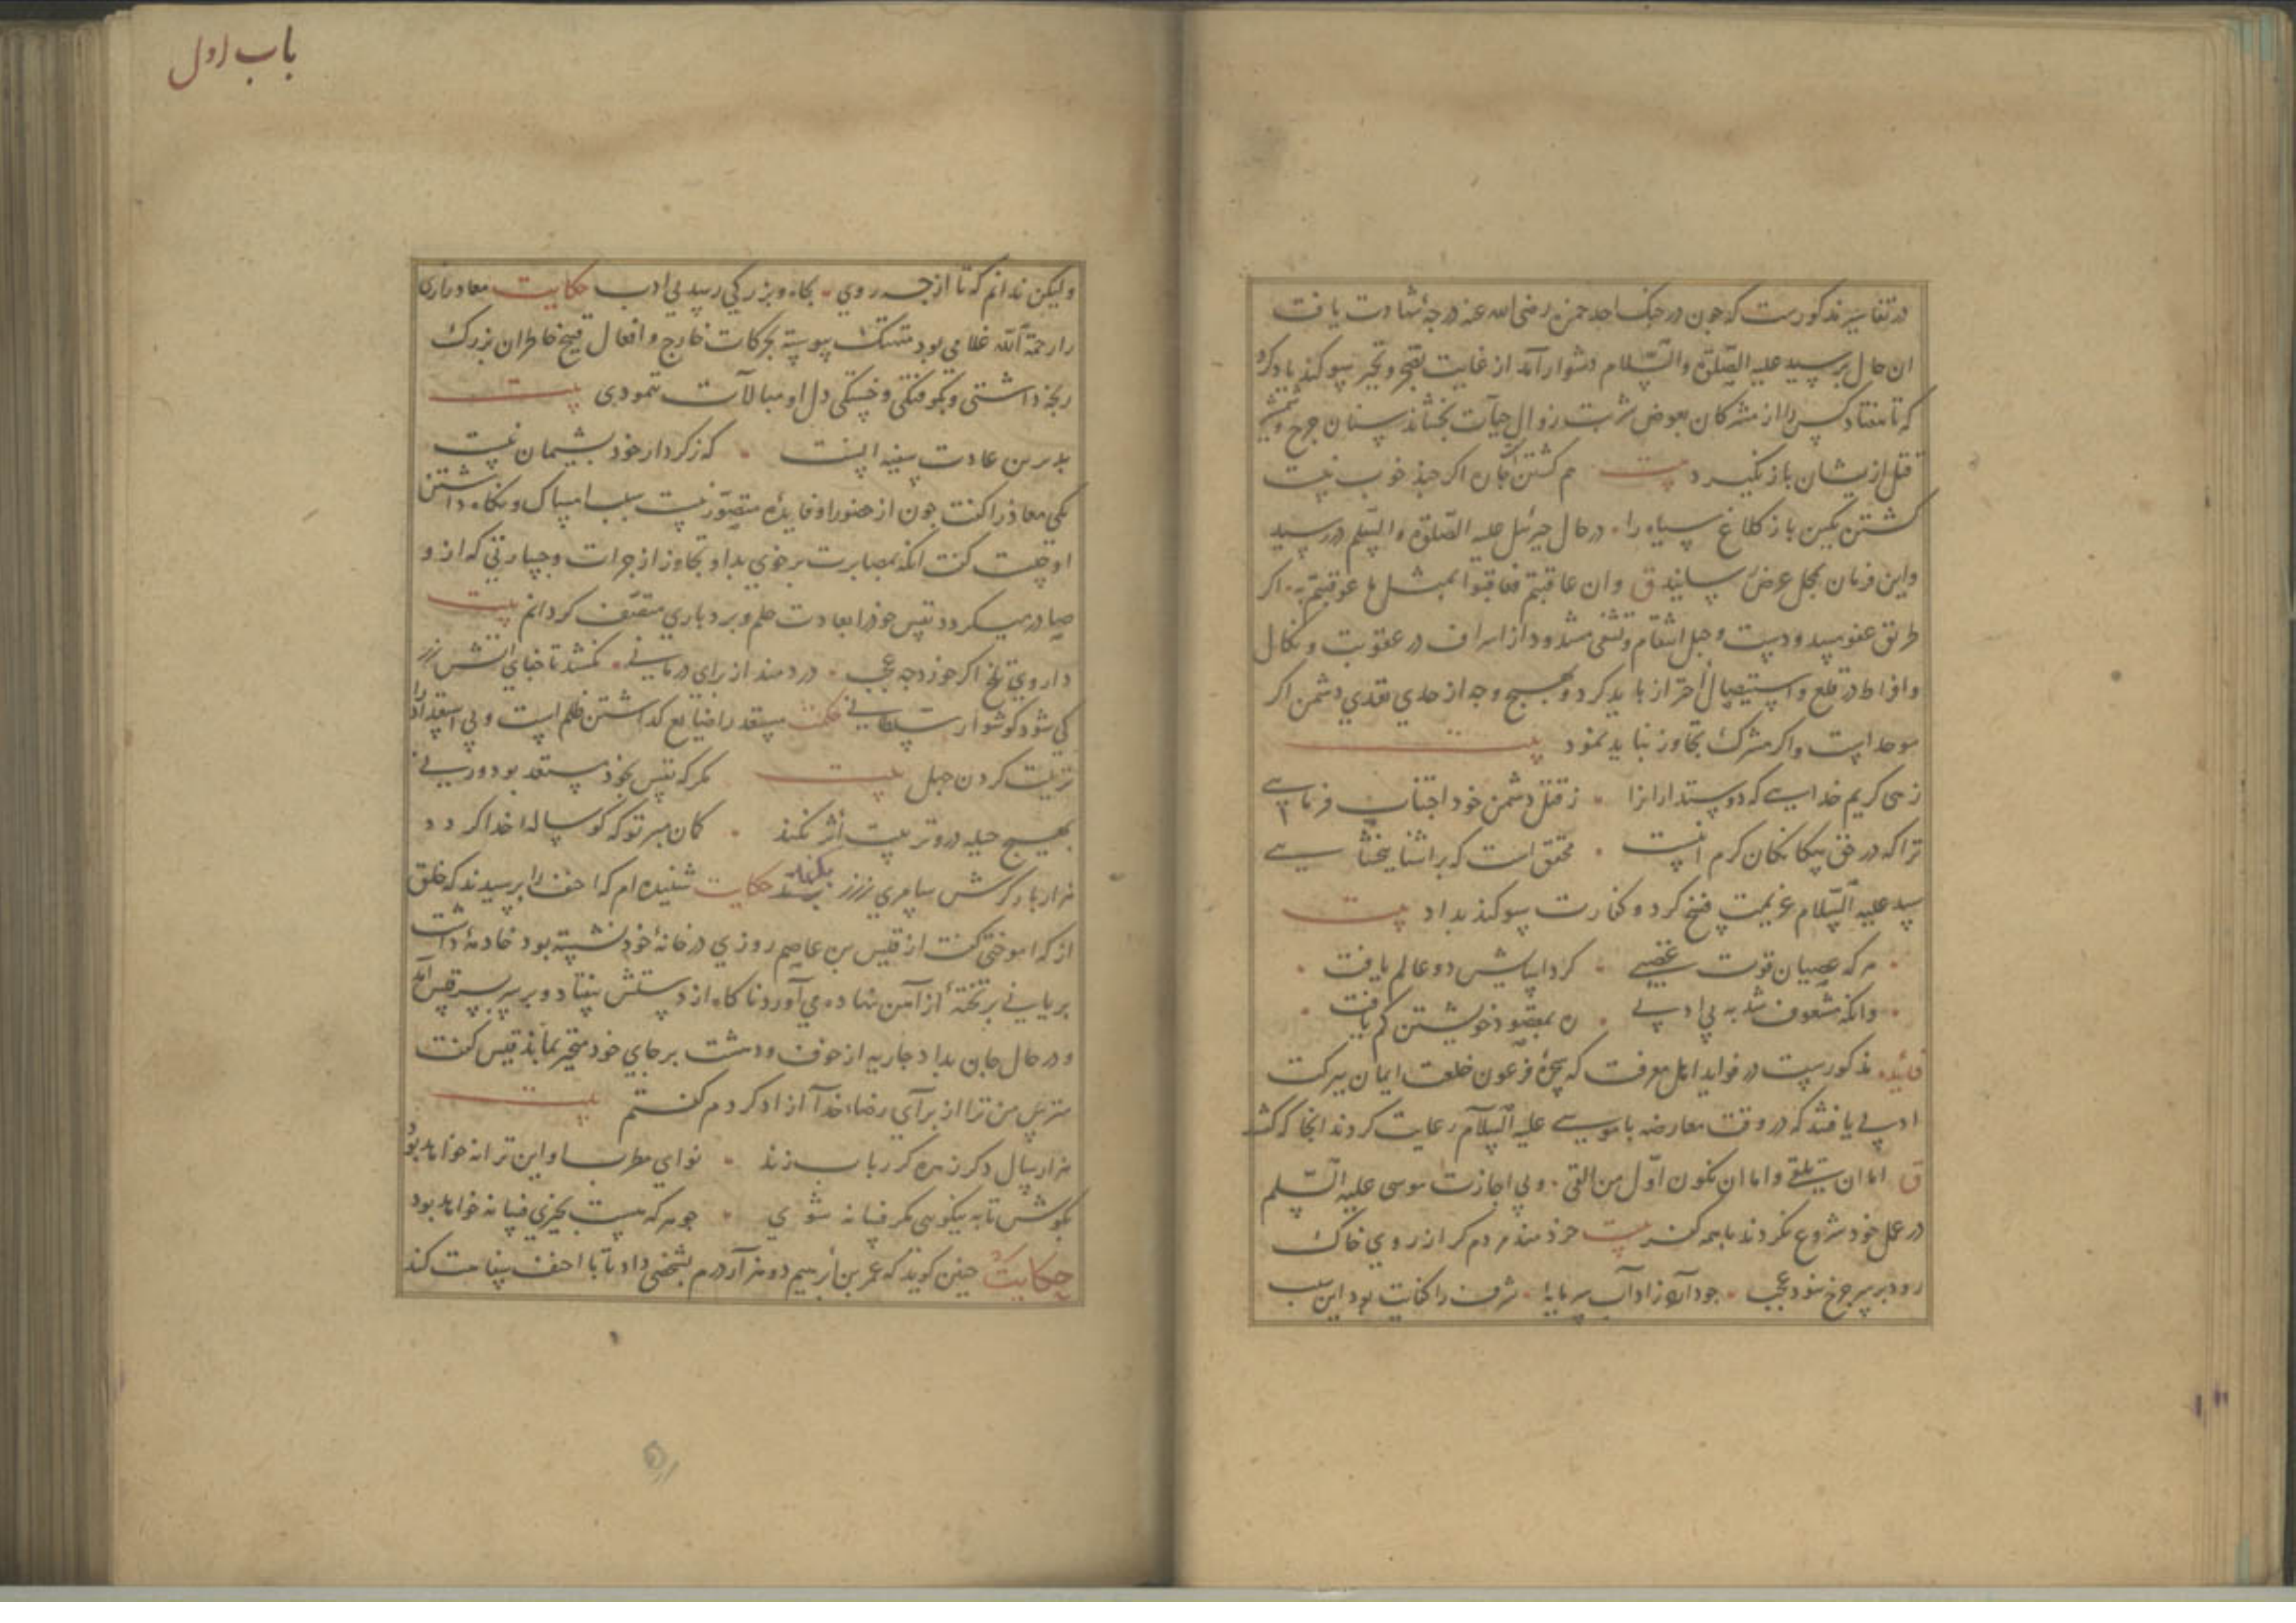 در تفاسیر مذکورست که چون در جنک احد حمزه رضی الله عنه درجهٔ شهادت یافت
ان حال بر سید علیه الصلوة والسلام دشوار آمد از غایت و تحیر سوکند یاد کرد
که تا هفتاد کس را از مشرکان بعوض شربت زوال حیات نجشاند سنان جرخ
قتل از یشان باز نکیرد بیت هم کشتن اکر جند خوب نیست
کشتن یکین باز کلاغ سیاه را در حال جبرئیل علیه الصلوة والسلم در رسید
واین فرمان بمحل عرض رسانید ق وان عاقبتم فعاقبوا بمثل ما عوقبتم به اکر
طریق عفو مسدودست و حبل انتقام و تشفی مشدود از اسراف در عقوبت و نکال
و افراط در قلع و استیصال احتراز باید کرد و بهیچ وجه از حد تعدی دشمن اکر
موحد است و اکر مشرک تجاوز نباید نمود بیت
زهی کریم خدایی که دوستدارانرا ز قتل دشمن خود اجتناب فرمایی
ترا که در حق بیکانکان کرم اینست محقق است که بر اشنا ببخشایی
سید علیه السلام عزیمت فسخ کرد و کفارت سوکند بداد بیت
هرکه عصیان قوت غضبی کرد اسایش دو عالم یافت
وانکه مشعوف شد به بی ادبی ره بمقصود خویشتن کم یافت
فائده مذکورست در فواید اهل معرفت که سحرهٔ فرعون خلعت ایمان ببرکت
ادبی یافتند که در وقت معارضه با موسی علیه السلام رعایت کردند انجا که
ق اما ان تلقی واما ان نکون اول من القی و بی اجازت موسی علیه السلم
در عمل خود شروع نکردند با همه کفر بیت خردمند مردم کر از روی خاک
رود بر سر جرخ نبود عجب جو آزاد سرمایهٔ شرف را کفایت بود این سبب
باب اول
ولیکن ندانم که تا از جه روی بجاه و بزرکی رسد بی ادب حکایت معاذ رازی
را رحمة الله غلامی بود متهتک پیوسته بحرکات خارج و افعال قبیح خاطر ان بزرک
رنجه داشتی و بکوفتکی و خستکی دل او مبالات ننمودی بیت
بدترین عادت سفیه اینست که ز کردار خود پشیمان نیست
یکی معاذ را کفت جون از حضور او فایدهٔ متصور نیست سبب امساک و نکاه داشتن
او جیست کفت انکه بمصابرت بر خوی بد او و تجاوز از جرات و جسارتی که از و
صادر میکردد نفس خود را بعادت حلم و بردباری متصف کردانم بیت
داروی تلخ اکر خورد جه عجب دردمند از برای درمانی نکشد تا جفای اتش زر
کی شود کوشوار سلطانی حکمت مستعد را ضایع کذاشتن ظلم است و بی استعداد را
تربیت کردن جهل بیت مکر که نفس بخود مستعد بود ور نی
بهیچ حیله درو تربیت اثر نکند کمان مبر تو که کوساله را خدا کردد
هزار بار کرش سامری ز زر بکند حکایت شنیده ام که احنف را پرسیدند که خلق
از که اموختی کفت از قیس بن عاصم روزی در خانهٔ خود نشسته بود خادمهٔ داشت
بریانی بر تختهٔ از آهن نهاده می آورد ناکاه از دستش بیفتاد و بر سر پسر قیس آمد
و در حال جان بداد جاریه از خوف و دهشت بر جای خود متحیر بماند قیس کفت
مترس من ترا از برای رضاء خدا آزاد کردم کفتم بیت
هزار سال دکر زهره کر رباب زند نوای مطرب او این ترانه خواهد بود
بکوش تا به نیکویی مکر فسانه شوی جو هر که هست بخیری فسانه خواهد بود
حکایت جنین کویند که عمر بن دو هزار درم بشخصی داد تا با احنف سفاهت کند